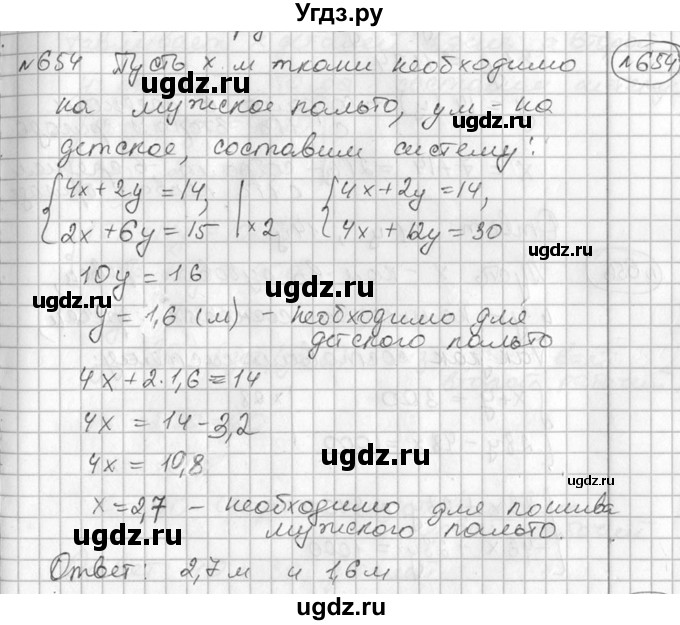 Угдз.ру
№654 Пусть x м ткани необходимо №654
ugdz.ru ugdz.ru
на мужское пальто, y м - на
ugdz.ru
детское, составим систему:
{4x+2y=14, {4x+2y=14,
{2x+6y=15 |×2 {4x+12y=30
10y=16
ugdz.ru ugdz.ru
y=1,6 (м) - необходимо для
детского пальто
4x+2·1,6=14
4x=14-3,2
ugdz.ru
4x=10,8
x=2,7 - необходимо для пошива
ugdz.ru
мужского пальто.
Ответ: 2,7м и 1,6м
ugdz.ru